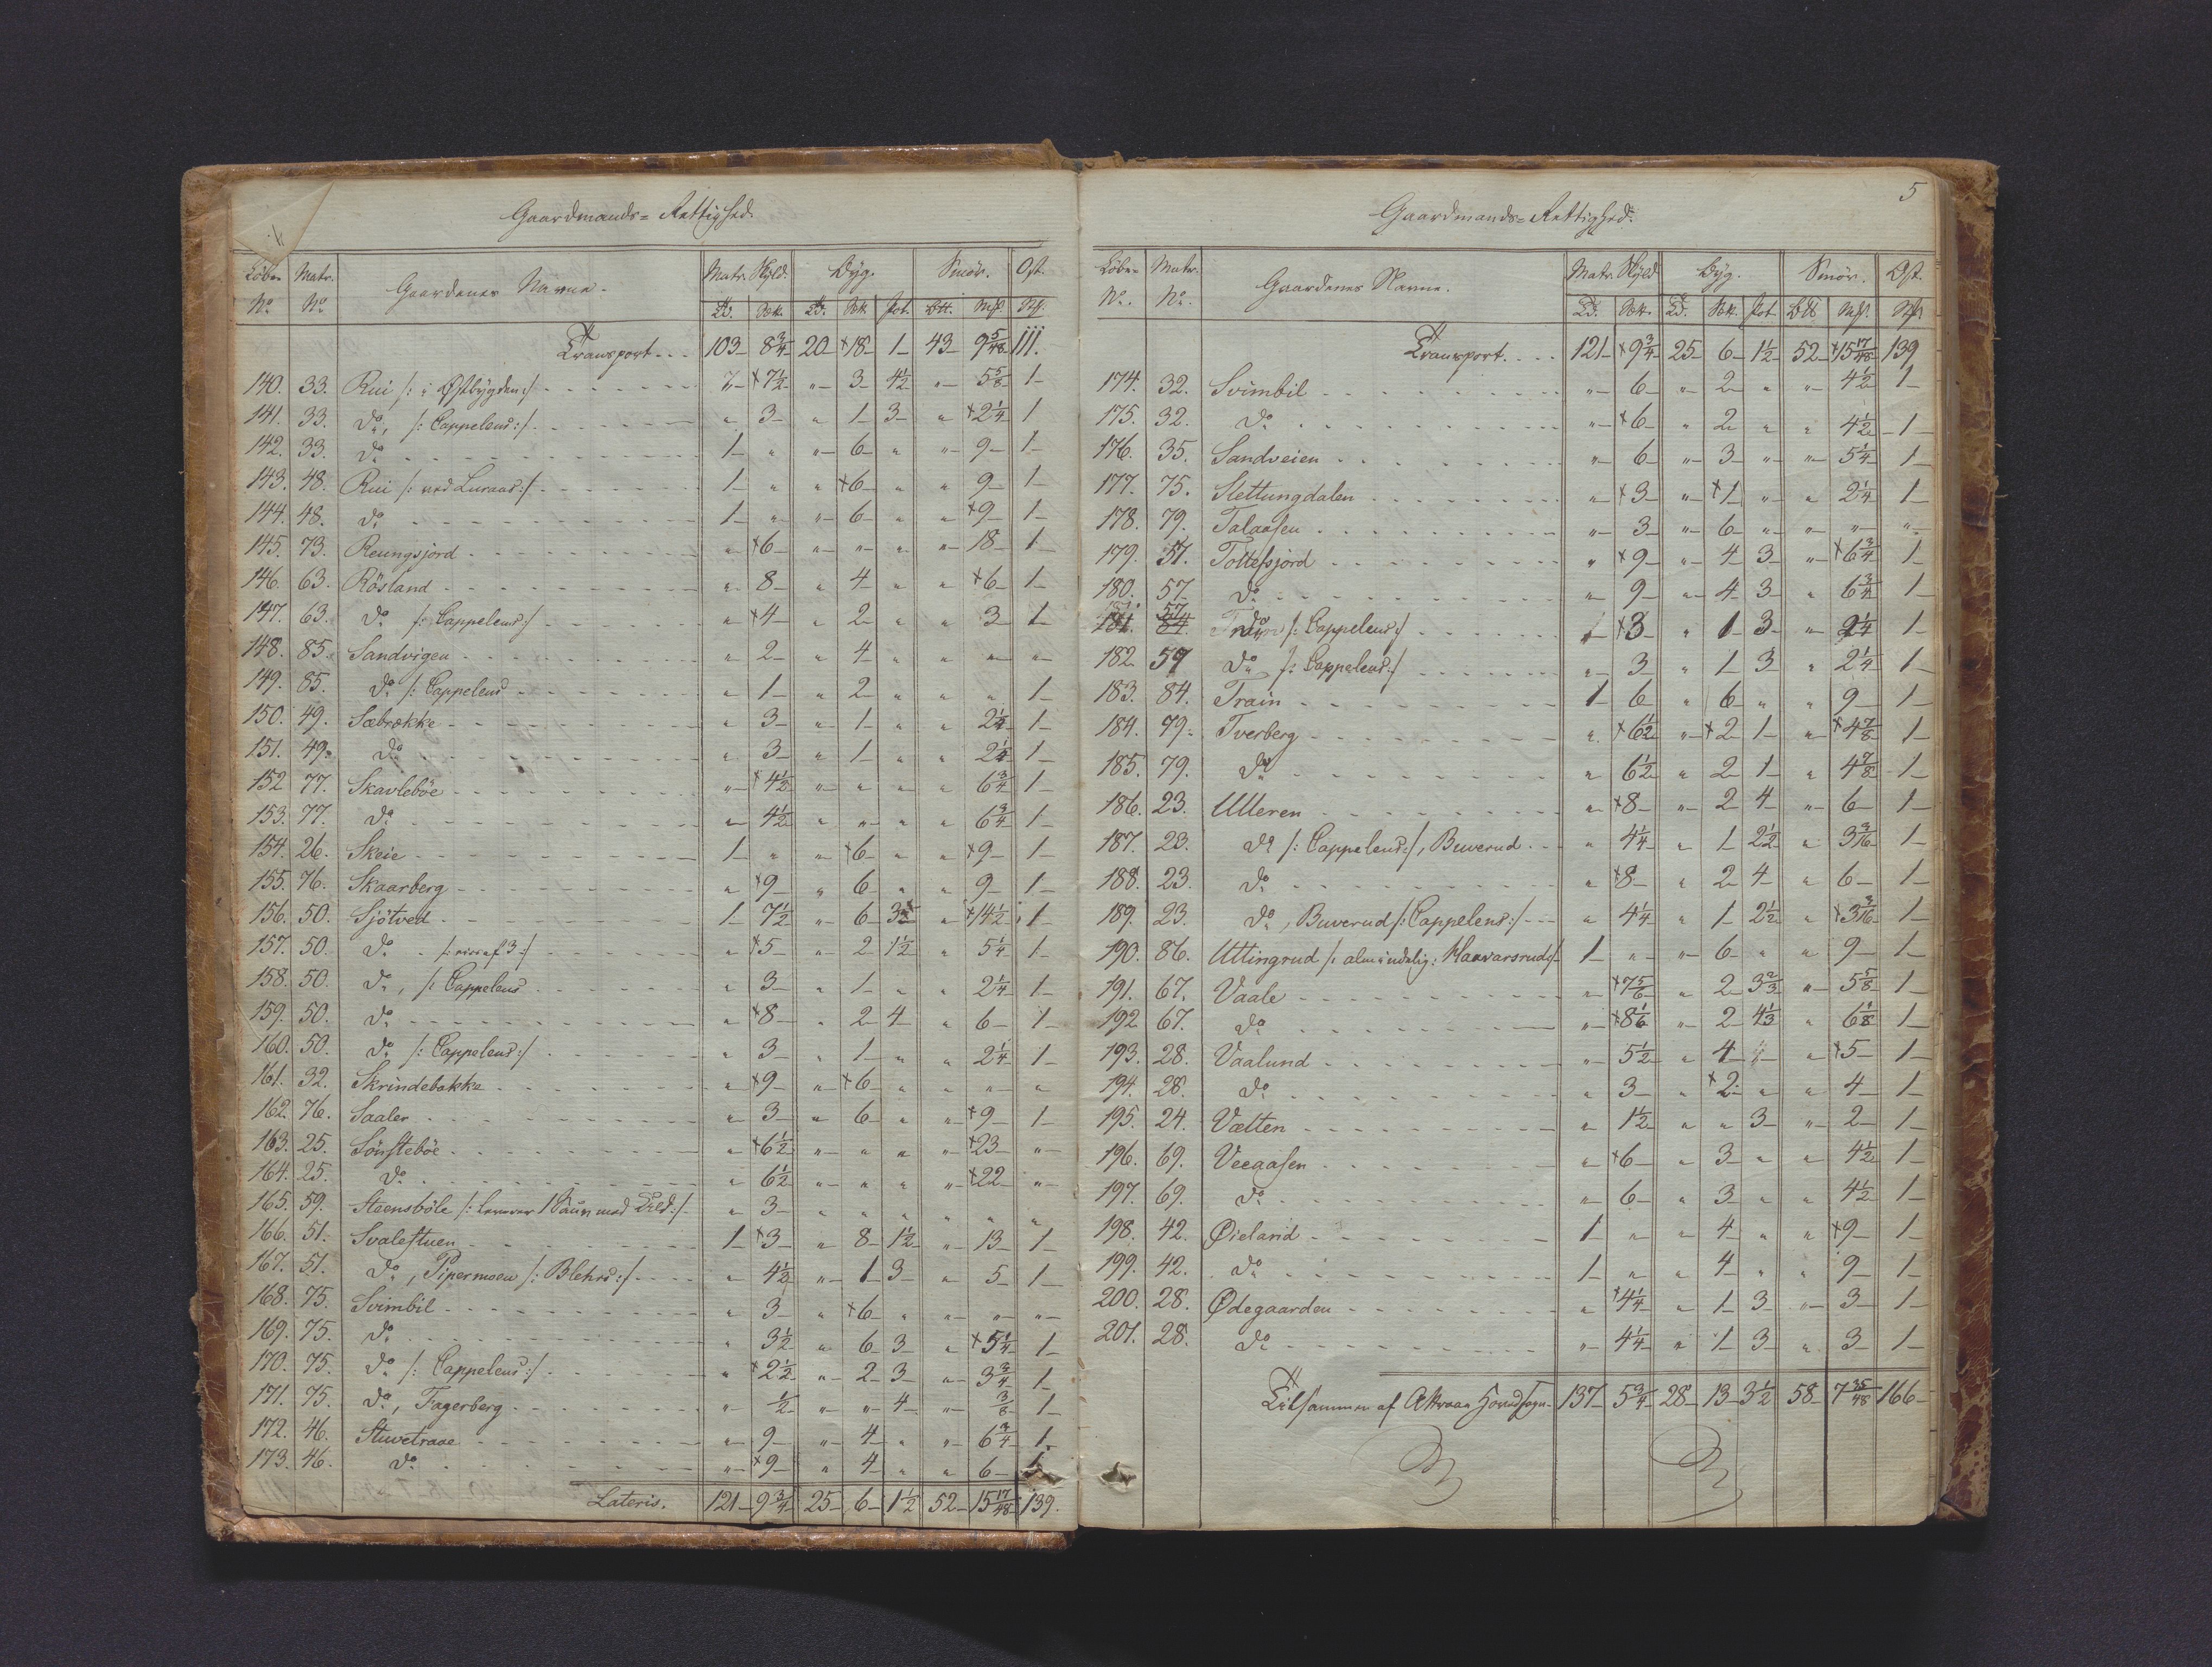 Gaardmands=Rettighed.
Löbe= Matr. Gaardenes Navne. Matr. Skyld. Byg. Smör. Ost.
No No Ld. Sk. Pot.
Transport 103 8 3/4 20 +18 1 43 9 5/48 111.
140. 33. Rui /: i Østbygden :/ +7 1/2 " 3 4 1/2 " 5 5/8 1
141. 33. Do, /: Cappelens :/ " 3 " 1 3 " +2 1/4 1
142. 33. Do 1 " " 6 " " 9 1
143. 48. Rui /: ved Luraas :/ 1 " " +6 " " 9 1
144. 48. Do 1 " " 6 " " +9 1
145. 73. Reungsjord " +6 " " " " 18 1
146. 63. Rösland " 8 " 4 " " +6 1
147. 63. Do /: Cappelens :/ " +4 " 2 " " 3 1
148. 85. Sandvigen " 2 " 4 " " " "
149. 85. Do /: Cappelens " 1 " 2 " " " 1
150. 49. Sæbrække " 3 " 1 " " 2 1/4 1
151. 49. Do " 3 " 1 " " 2 1/4 1
152 77. Skavleböe " +4 1/2 " " " " 6 3/4 1
153. 77. Do " 4 1/2 " " " " 6 3/4 1
154. 26. Skeie 1 " " +6 " " +9 1
155. 76. Skaarberg " +9 " 6 " " 9 1
156. 50. Sjötved 1 7 1/2 " 6 3 " +14 1/2 1
157. 50. Do " +5 " 2 1 1/2 " 5 1/4 1
158. 50. Do, /: Cappelens " 3 " 1 " " 2 1/4 1
159. 50. Do " +8 " 2 4 " 6 1
160. 50. Do /: Cappelens :/ " 3 " 1 " " 2 1/4 1
161. 32. Skrindebakke " +9 " +6 " " " "
162. 76. Saaler " 3 " 6 " " +9 1
163. 25. Sönsteböe " +6 1/2 " " " " +23 "
164. 25. Do " 6 1/2 " " " " +22 "
165. 59. Steensböle /: 1 med :/ " 3 " " " " " "
166. 51. Svalestuen 1 +3 " 8 1 1/2 " 13 1
167. 51. Do, Pipermoen /: Blehrs :/ " 4 1/2 " 1 3 " 5 1
168. 75. Svimbil " 3 " +6 " " " "
169. 75. Do " 3 1/2 " 6 3 " +5 1/4 1
170. 75. Do /: Cappelens :/ " +2 1/2 " 2 3 " 3 3/4 1
171. 75. Do, Fagerberg " 1/2 " " 4 " 3/8 1
172. 46. Stuvetraae " 9 " 4 " " 6 3/4 1.
173. 46. Do " +9 " 4 " " 6 1
Lateris. 121 9 3/4 25 6 1 1/2 52 15 17/48 139.
5
Gaardmands=Rettighed.
Löbe= Matr. Gaardenes Navne. Matr. Skyld Byg. Smör. Ost.
No. No. Ld. Sk. Ld. Sk. Pot
Transport. 121 +9 3/4 25 6 1 1/2 52 +15 17/48 139
174. 32. Svimbil " 6 " 2 " " 4 1/2 1
175. 32. Do " +6 " 2 " " 4 1/2 1
176. 35. Sandveien " 6 " 3 " " 5 1/4 1
177. 75. Slettungdalen " +3 " +1 " " 2 1/4 1
178. 79. Talaasen " 3 " 6 " " " "
179. 57. Tollefsjord " +9 " 4 3 " +6 3/4 1
180. 57. Do " 9 " 4 3 " 6 3/4 1
181. 57 Do /: Cappelens :/ +3 " 1 3 " 2 1/4 1
182 57 Do /: Cappelens :/ " 3 " 1 3 " 2 1/4 1
183. 84. Train 1 6 " 6 " " 9 1
184. 79. Tverberg " +6 1/2 " +2 1 " +4 7/8 1
185. 79. Do " 6 1/2 " 2 1 " 4 7/8 1
186. 23. Ulleren " +8 " 2 4 " 6 1
187. 23. Do /: Cappelens :/, Buverud " 4 1/4 " 1 2 1/2 " 3 3/16 1
188. 23. Do " +8 " 2 4 " 6 1
189. 23. Do, Buverud /: Cappelens :/ " 4 1/4 " 1 2 1/2 " +3 3/16 1
190. 86. Uttingrud /: almindelig: Haavarsrud :/ 1 " " 6 " " 9 1
191. 67. Vaale " +7 5/6 " 2 3 2/3 " 5 5/8 1
192 67. Do " +8 1/6 " 2 4 1/3 " 6 1/8 1
193. 28. Vaalund " 5 1/2 " 4 " " +5 1
194. 28. Do " 3 " +2 " " 4 1
195. 24. Vætten " 1 1/2 " " 3 " 2 1
196. 69. Veeaasen " +6 " 3 " " 4 1/2 1
197. 69. Do " 6 " 3 " " 4 1/2 1
198. 42. Øieland 1 " " 4 " " +9 1
199. 42. Do 1 " " 4 " " 9 1
200. 28. Ødegaarden " +4 1/4 " 1 3 " 3 1
201. 28. Do " 4 1/4 " 1 3 " 3 1
Tilsammen af Attraae Hovedsogn 137 5 3/4 28 13 3 1/2 58 7 35/48 166